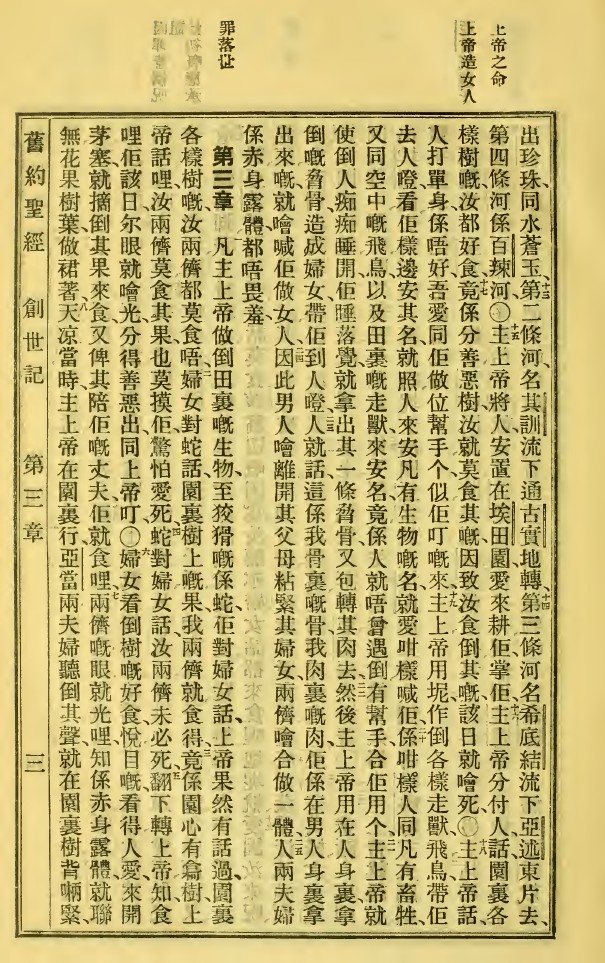 上帝之命
上帝造女人
罪落世
出珍珠同水蒼玉、第二條河名其訓流下通古實地轉、第三條河名希底結流下亞述東片去、
第四條河係百辣河〇主上帝將人安置在埃田園愛來耕佢掌佢、主上帝分付人話園裏各
樣樹嘅、汝都好食、竟係分善惡樹、汝就莫食其嘅、因致汝食倒其嘅該日就噲死〇主上帝話、
人打單身係唔好、吾愛同佢做位幫手个似佢叮嘅來、主上帝用坭作倒各樣走獸飛鳥、帶佢
去人嶝看佢樣邊安其名、就照人來安、凡有生物嘅名、就愛咁樣喊佢係咁樣、人同凡有畜牲、
又同空中嘅飛鳥、以及田裏嘅走獸來安名、竟係人就唔曾遇倒有幫手合佢用个、主上帝就
使倒人痴痴睡開、佢睡落覺就拿出其一條脅骨、又包轉其肉去、然後主上帝用在人身裏拿
倒嘅脅骨造成婦女、帶佢到人嶝、人就話、這係我骨裏嘅骨、我肉裏嘅肉、佢係在男人身裏拿
出來嘅、就噲喊佢做女人、因此男人噲離開其父母粘緊其婦女、兩儕噲合做一體、人兩夫婦
係赤身露體、都唔畏羞、
第三章 凡主上帝做倒田裏嘅生物、至狡猾嘅係蛇、佢對婦女話、上帝果然有話過、園裏
各樣樹嘅、汝兩儕都莫食唔、婦女對蛇話、園裏樹上嘅果、我兩儕就食得、竟係園心有寫樹上
帝話哩、汝兩儕莫食其果、也莫摸佢、驚怕愛死、蛇對婦女話、汝兩儕未必死、翻下轉上帝知、食
哩佢該日尔眼就噲光、分得善惡出同上帝叮〇婦女看倒樹嘅好食、悅目嘅看得人愛來開
茅塞、就摘倒其果來食、又俾其陪佢嘅丈夫、佢就食哩、兩儕嘅眼就光哩、知係赤身露體、就聯
無花果樹葉做裙著、天涼當時、主上帝在園裏行、亞當兩夫婦聽倒其聲、就在園裏樹背囇緊、
舊約聖經 創世記 第三章 三